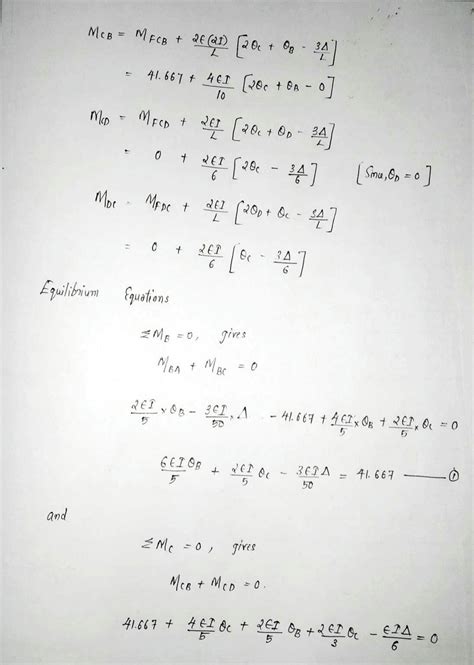 MCB = MFCB + 2EI(2I)/L [2θC + θB - 3Δ/L]
= 41.667 + 4EI/10 [2θC + θB - 0]
MCD = MFCD + 2EI/L [2θC + θD - 3Δ/L]
= 0 + 2EI/6 [2θC - 3Δ/6] [Since, θD = 0]
MDC = MFDC + 2EI/L [2θD + θC - 3Δ/L]
= 0 + 2EI/6 [θC - 3Δ/6]
Equilibrium Equations
ΣMB = 0, gives
MBA + MBC = 0
2EI/5 × θB - 3EI/50 × Δ - 41.667 + 4EI/5 × θB + 2EI/5 × θC = 0
6EIθB/5 + 2EI/5 θC - 3EIΔ/50 = 41.667 —— ①
and
ΣMC = 0, gives
MCB + MCD = 0.
41.667 + 4EI/5 θC + 2EI/5 θB + 2EI/3 θC - EIΔ/6 = 0